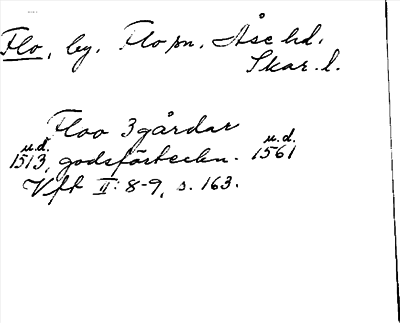 Flo, by. Flo sn. Åse hd.
Skar. l.
Floo 3 gårdar
u.d. u.d.
1513, godsförteckn. 1561
Vft II: 8-9, s. 163.